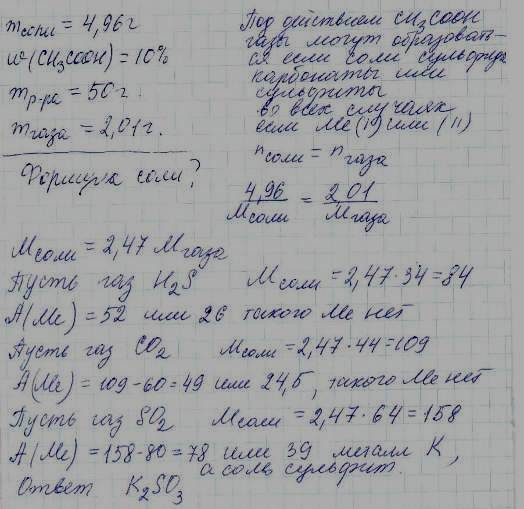 mсоли = 4,96 г
w(CH₃COOH) = 10%
mр-ра = 50 г.
mгаза = 2,01 г.
Формула соли?
Под действием CH₃COOH
газы могут образоват-
ся если соли сульфиды
карбонаты или
сульфиты
во всех случаях
если Me(I) или (II)
nсоли = nгаза
4,96/Mсоли = 2,01/Mгаза
Mсоли = 2,47 Mгаза
Пусть газ H₂S Mсоли = 2,47·34 = 84
A(Me) = 52 или 26 такого Me нет
Пусть газ CO₂ Mсоли = 2,47·44 = 109
A(Me) = 109-60 = 49 или 24,5, такого Me нет
Пусть газ SO₂ Mсоли = 2,47·64 = 158
A(Me) = 158-80 = 78 или 39 металл K,
а соль сульфит.
Ответ K₂SO₃